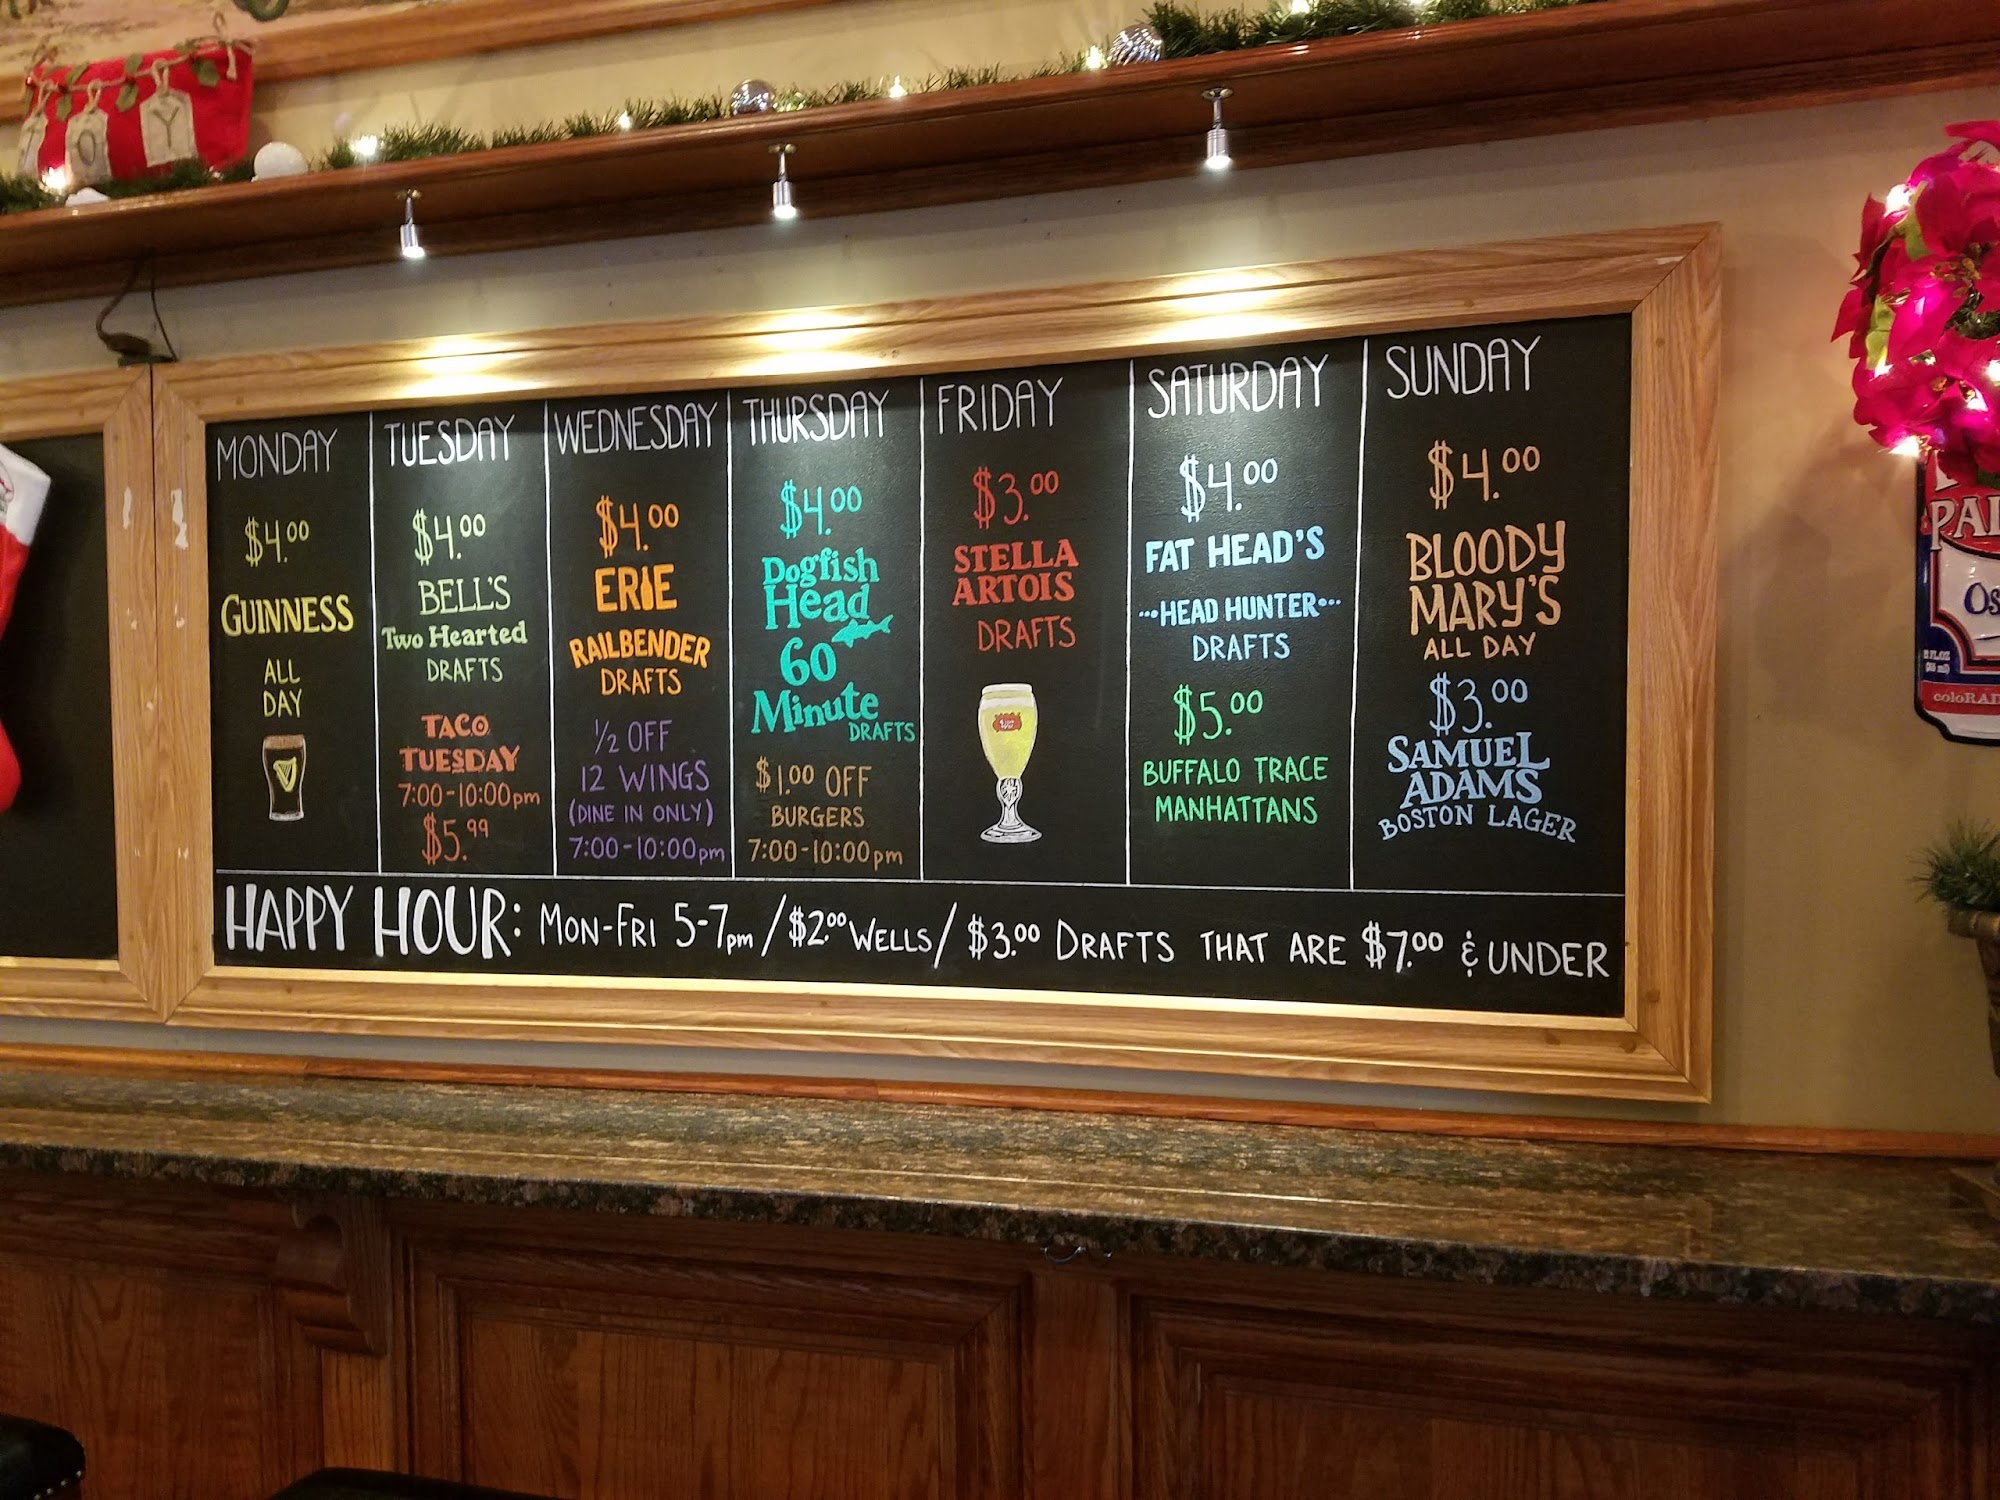 T O Y
MONDAY
$4.00
GUINNESS
ALL
DAY
TUESDAY
$4.00
BELL'S
Two Hearted
DRAFTS
TACO
TUESDAY
7:00-10:00pm
$5.99
WEDNESDAY
$4.00
ERIE
RAILBENDER
DRAFTS
1/2 OFF
12 WINGS
(DINE IN ONLY)
7:00-10:00pm
THURSDAY
$4.00
Dogfish
Head
60
Minute
DRAFTS
$1.00 OFF
BURGERS
7:00-10:00pm
FRIDAY
$3.00
STELLA
ARTOIS
DRAFTS
SATURDAY
$4.00
FAT HEAD'S
···HEAD HUNTER···
DRAFTS
$5.00
BUFFALO TRACE
MANHATTANS
SUNDAY
$4.00
BLOODY
MARY'S
ALL DAY
$3.00
SAMUEL
ADAMS
BOSTON LAGER
HAPPY HOUR: MON-FRI 5-7pm / $2.00 WELLS / $3.00 DRAFTS THAT ARE $7.00 & UNDER
PAL
Os
12 FL.OZ
coloRAD